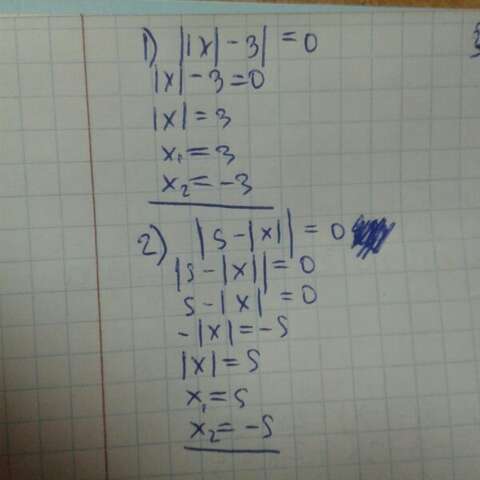 1) ||x| - 3| = 0
|x| - 3 = 0
|x| = 3
x₁ = 3
x₂ = -3
2) |5 - |x|| = 0
|5 - |x|| = 0
5 - |x| = 0
-|x| = -5
|x| = 5
x₁ = 5
x₂ = -5